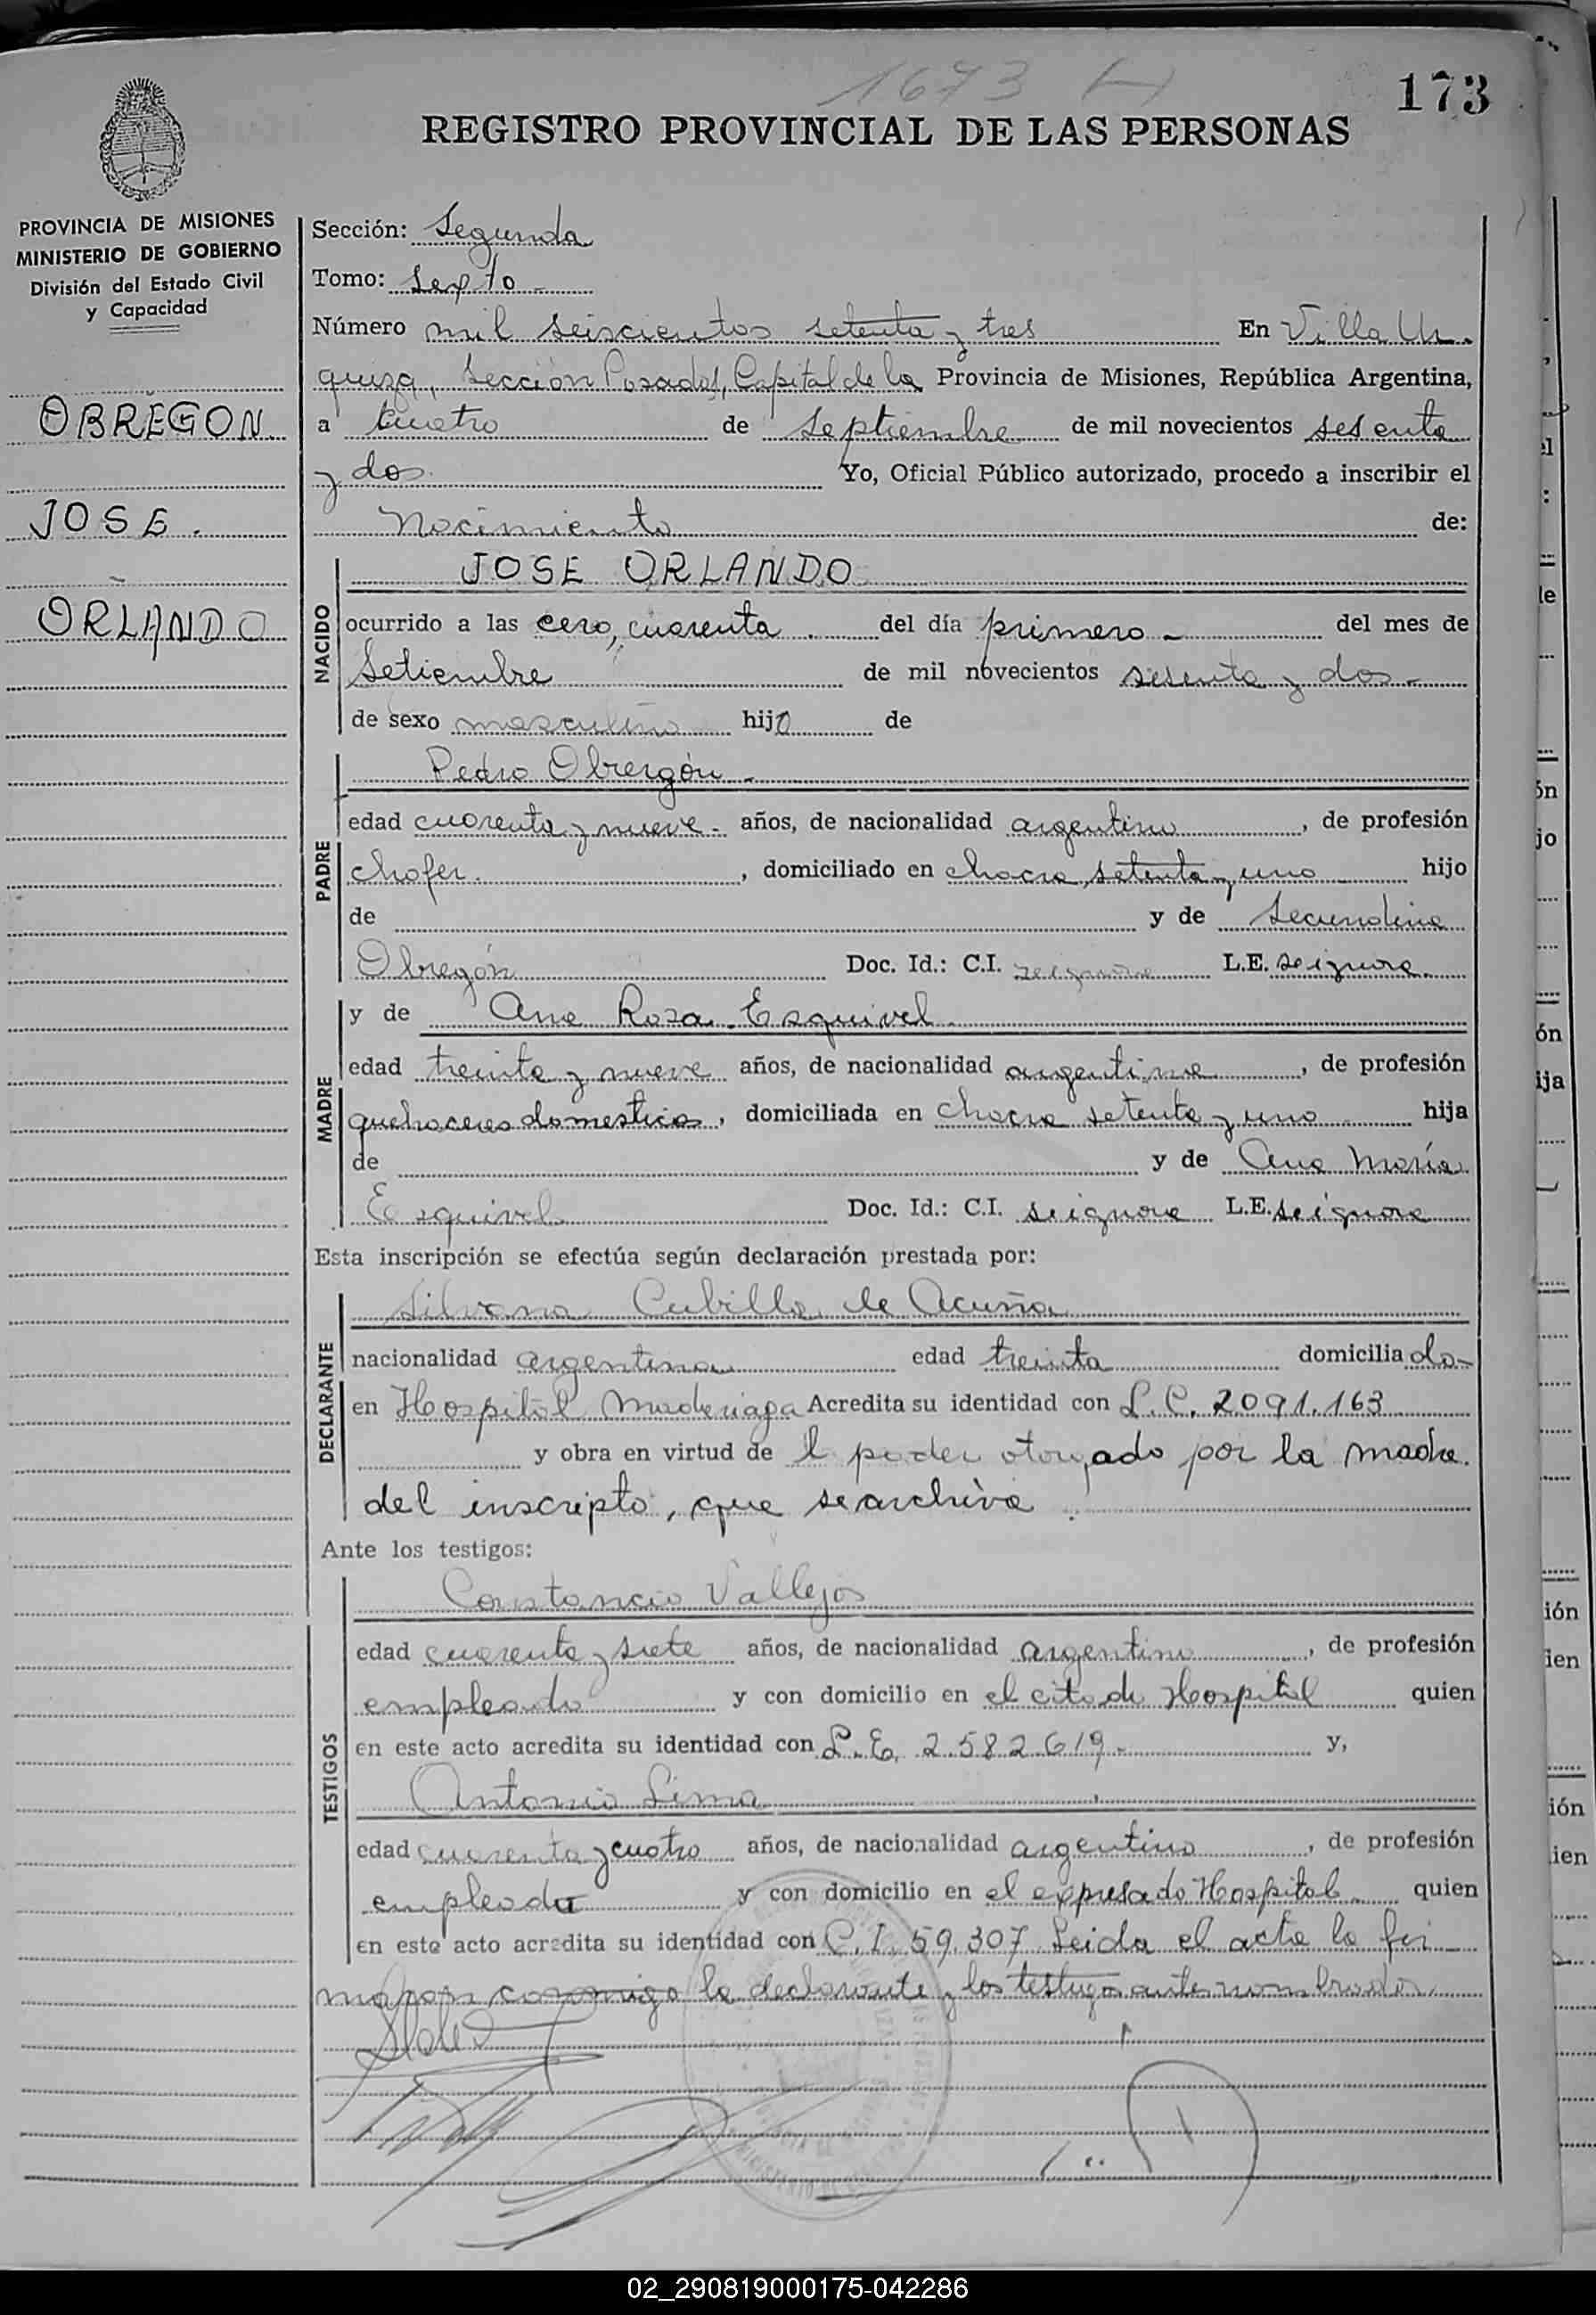 1673
173
REGISTRO PROVINCIAL DE LAS PERSONAS
PROVINCIA DE MISIONES
MINISTERIO DE GOBIERNO
División del Estado Civil
y Capacidad
OBREGON
JOSE.
ORLANDO
Sección: Segunda
Tomo: Sexto -
Número mil seiscientos setenta y tres En Villa Ur-
quiza, Sección Posadas, Capital de la Provincia de Misiones, República Argentina,
a cuatro de Septiembre de mil novecientos sesenta
y dos. Yo, Oficial Público autorizado, procedo a inscribir el
Nacimiento de:
NACIDO
JOSE ORLANDO
ocurrido a las cero, cuarenta. del día primero - del mes de
Setiembre de mil novecientos sesenta y dos -
de sexo masculino hijo de
PADRE
Pedro Obregón -
edad cuarenta y nueve - años, de nacionalidad argentino, de profesión
chofer. , domiciliado en chacra setenta y uno hijo
de y de Secundina
Obregón Doc. Id.: C.I. se ignora L.E. se ignora.
MADRE
y de Ana Rosa Esquivel.
edad treinta y nueve años, de nacionalidad argentina, de profesión
quehaceres domesticos, domiciliada en chacra setenta y uno hija
de y de Ana María
Esquivel Doc. Id.: C.I. se ignora L.E. se ignora
Esta inscripción se efectúa según declaración prestada por:
DECLARANTE
Silvana Cubilla de Acuña
nacionalidad argentina edad treinta domiciliado-
en Hospital Madariaga Acredita su identidad con L.C. 2091.163
y obra en virtud de l poder otorgado por la madre.
del inscripto, que se archiva.
Ante los testigos:
TESTIGOS
Constancio Vallejos
edad cuarenta y siete años, de nacionalidad argentino, de profesión
empleado y con domicilio en el citado Hospital quien
en este acto acredita su identidad con L.E. 2.582.619 - y,
Antonio Lima
edad cuarenta y cuatro años, de nacionalidad argentino, de profesión
empleado y con domicilio en el expresado Hospital quien
en este acto acredita su identidad con C.I. 59.307 Leida el acta la fir-
maron conmigo la declarante y los testigos antes nombrados.
02_290819000175-042286